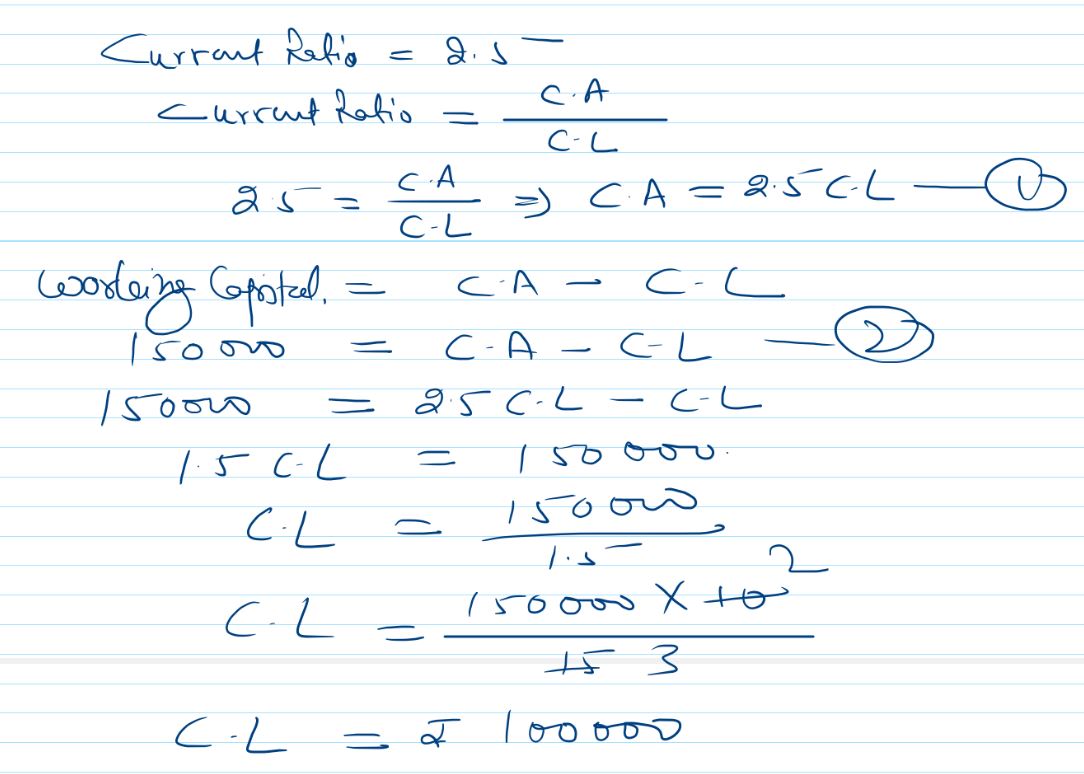 Current Ratio = 2.5
Current Ratio = C.A / C-L
2.5 = C.A / C-L ⇒ C.A = 2.5 C-L — (1)
Working Capital. = C.A - C-L
150000 = C-A - C-L — (2)
150000 = 2.5 C-L - C-L
1.5 C-L = 150000.
C-L = 150000 / 1.5
C.L = 150000 X 10 2 / 15 3
C-L = ₹ 100000